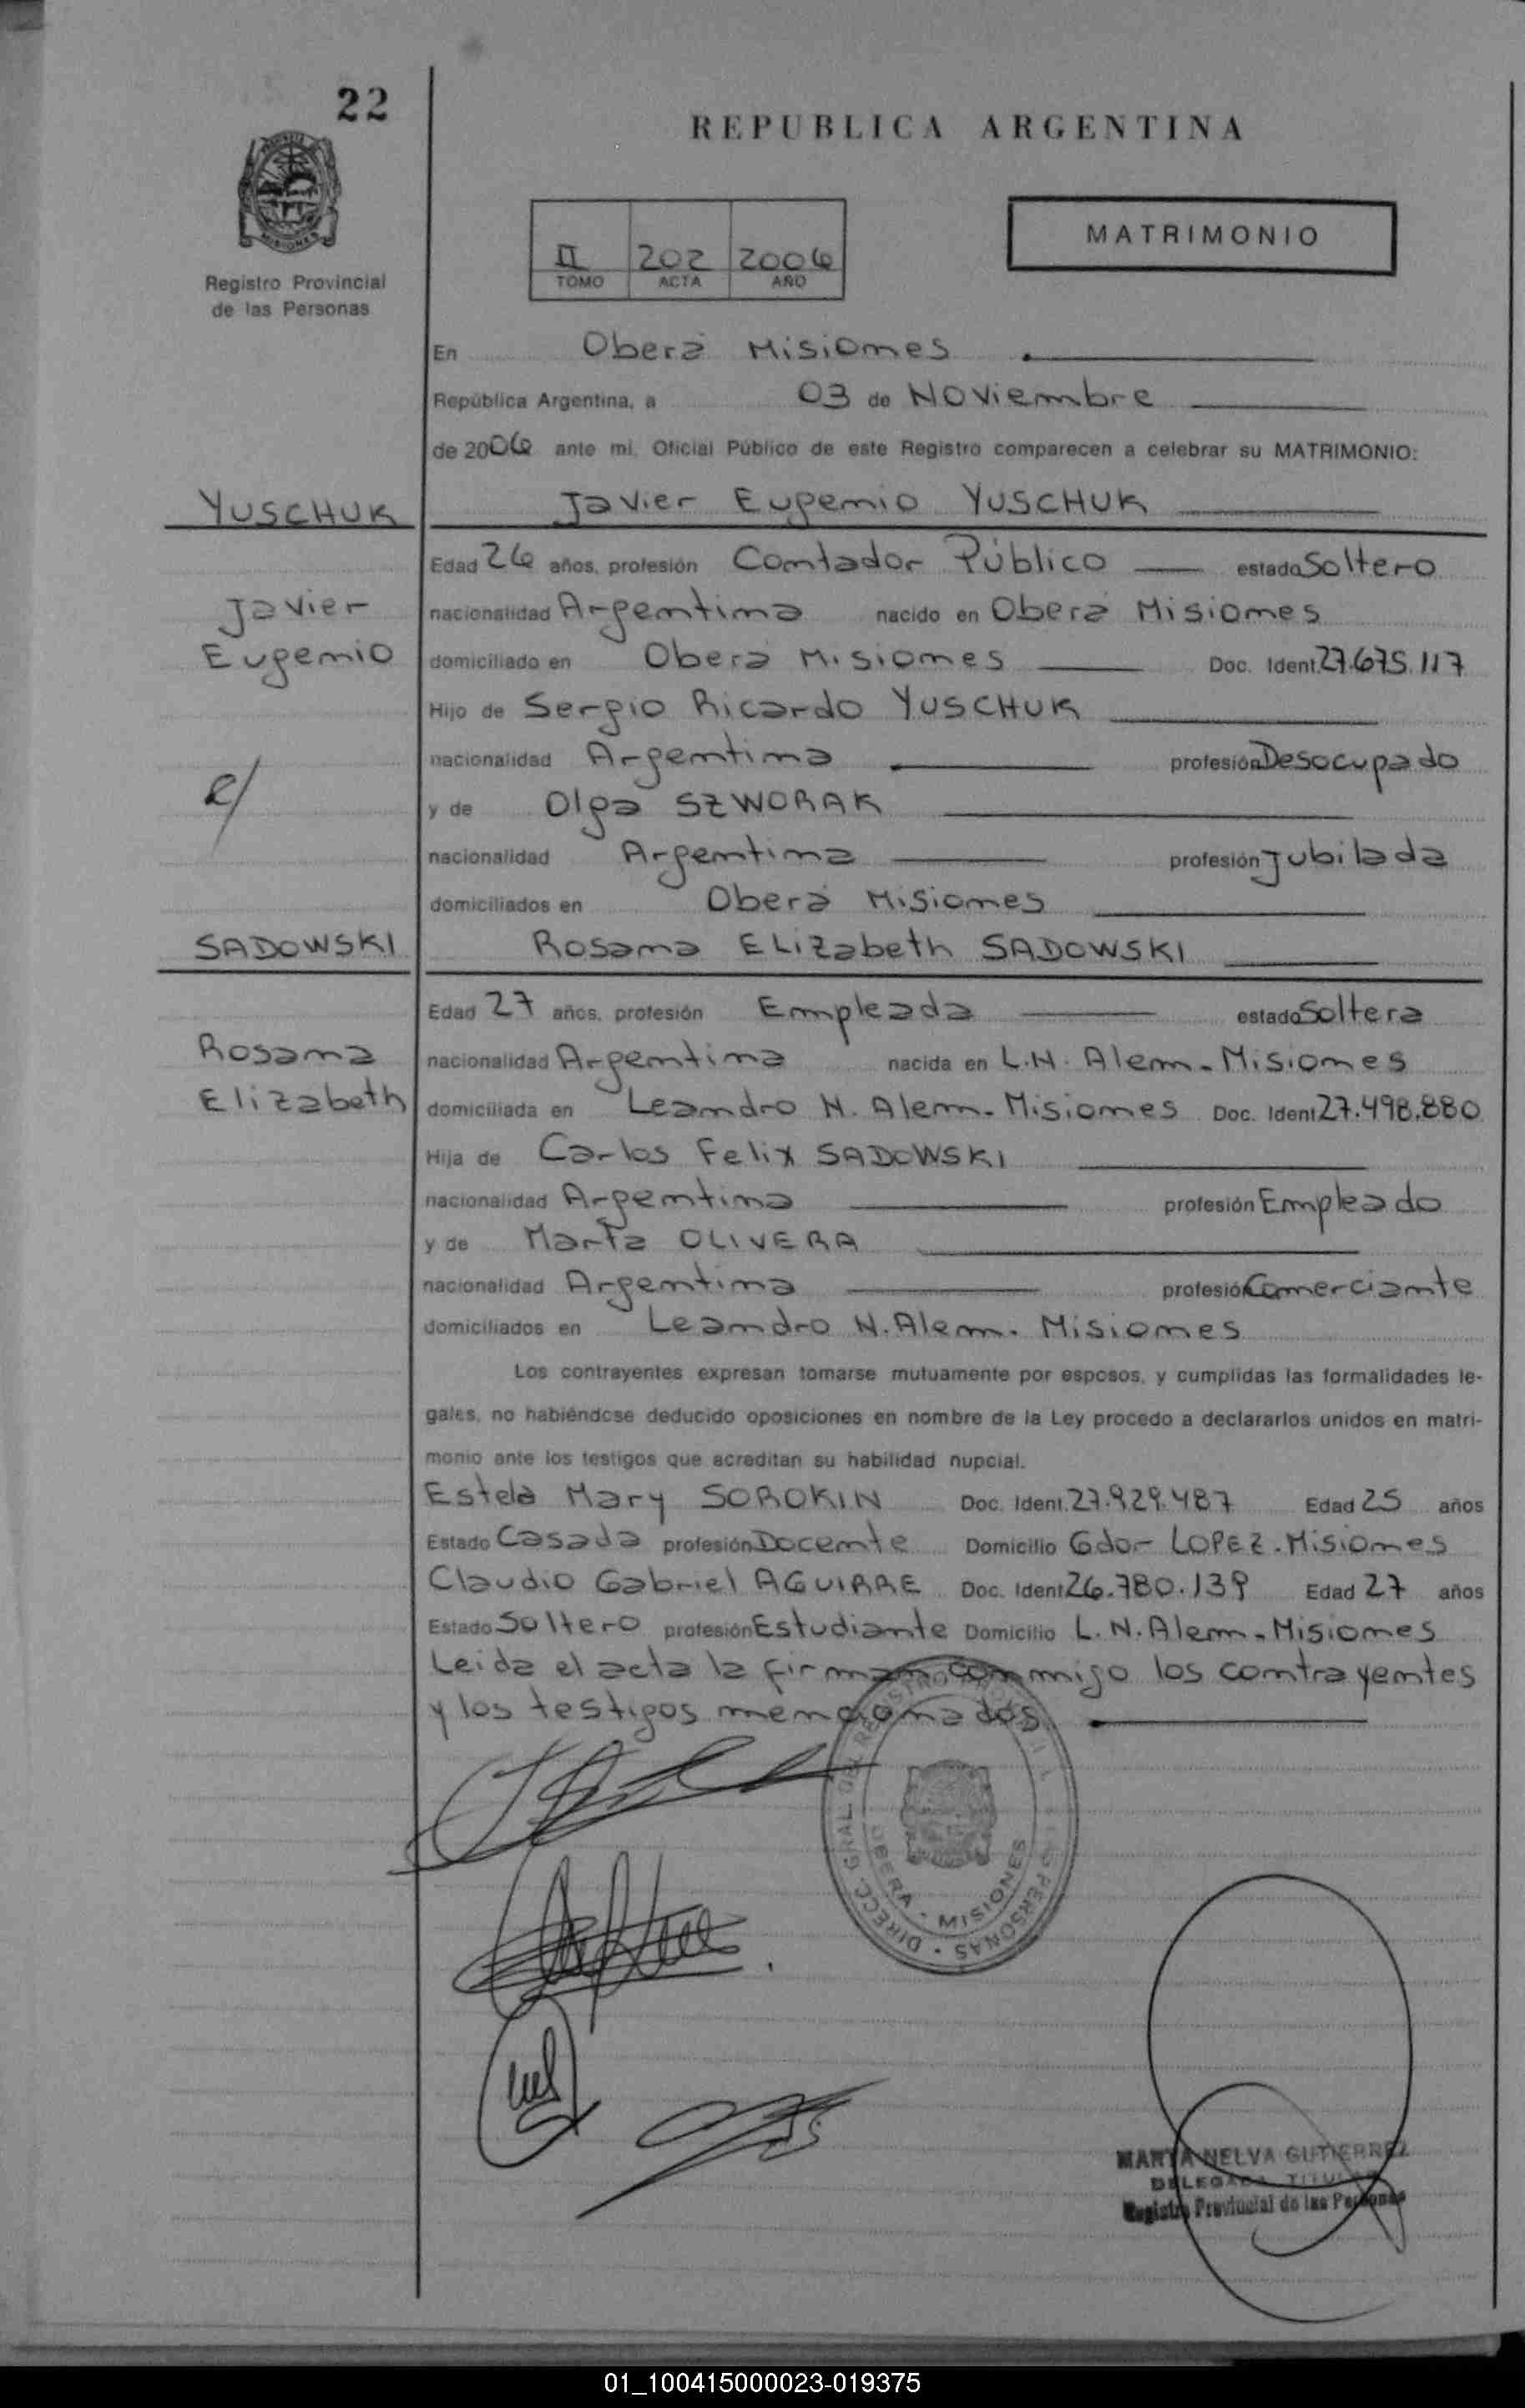 22
REPUBLICA ARGENTINA
MISIONES
Registro Provincial
de las Personas
II 202 2006
TOMO ACTA AÑO
MATRIMONIO
En Oberá Misiones
República Argentina, a 03 de Noviembre
de 2006 ante mi, Oficial Público de este Registro comparecen a celebrar su MATRIMONIO:
YUSCHUK Javier Eugenio YUSCHUK
Edad 26 años, profesión Contador Público estado Soltero
Javier nacionalidad Argentina nacido en Oberá Misiones
Eugenio domiciliado en Oberá Misiones Doc. Ident. 27.675.117
Hijo de Sergio Ricardo YUSCHUK
nacionalidad Argentina profesión Desocupado
c/ y de Olga SZWORAK
nacionalidad Argentina profesión Jubilada
domiciliados en Oberá Misiones
SADOWSKI Rosana ELizabeth SADOWSKI
Edad 27 años, profesión Empleada estado Soltera
Rosana nacionalidad Argentina nacida en L.N. Alem - Misiones
Elizabeth domiciliada en Leandro N. Alem - Misiones Doc. Ident 27.498.880
Hija de Carlos Felix SADOWSKI
nacionalidad Argentina profesión Empleado
y de Marta OLIVERA
nacionalidad Argentina profesión Comerciante
domiciliados en Leandro N. Alem. Misiones
Los contrayentes expresan tomarse mutuamente por esposos, y cumplidas las formalidades le-
gales, no habiéndose deducido oposiciones en nombre de la Ley procedo a declararlos unidos en matri-
monio ante los testigos que acreditan su habilidad nupcial.
Estela Mary SOROKIN Doc. Ident. 27.929.487 Edad 25 años
Estado Casada profesión Docente Domicilio Gdor LOPEZ - Misiones
Claudio Gabriel AGUIRRE Doc. Ident 26.780.139 Edad 27 años
Estado Soltero profesión Estudiante Domicilio L. N. Alem - Misiones
Leida el acta la firman conmigo los contrayentes
y los testigos mencionados
DIRECC. GRAL DEL REGISTRO PERSONAS
OBERA - MISIONES
MARTA NELVA GUTIERREZ
DELEGADA TITULAR
Registro Provincial de las Personas
01_100415000023-019375